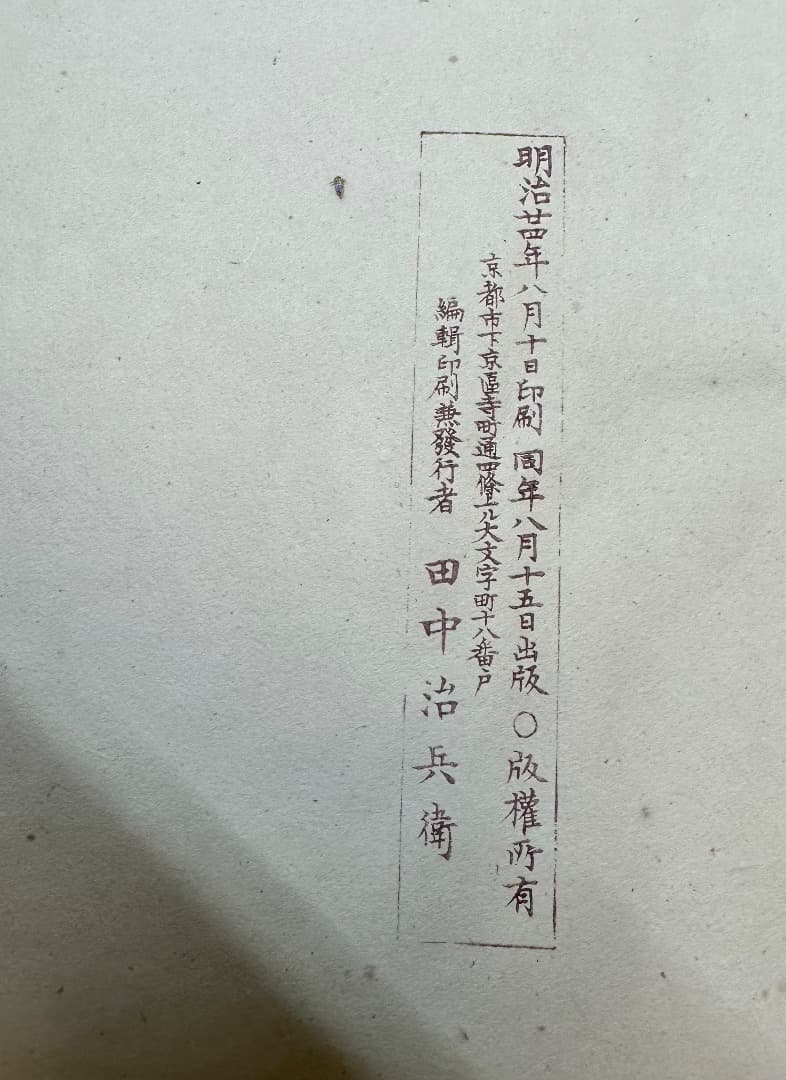 明治廿四年八月十日印刷 同年八月十五日出版 ○版權所有
京都市下京區寺町通四條上ル大文字町十八番戸
編輯印刷兼發行者 田中治兵衛